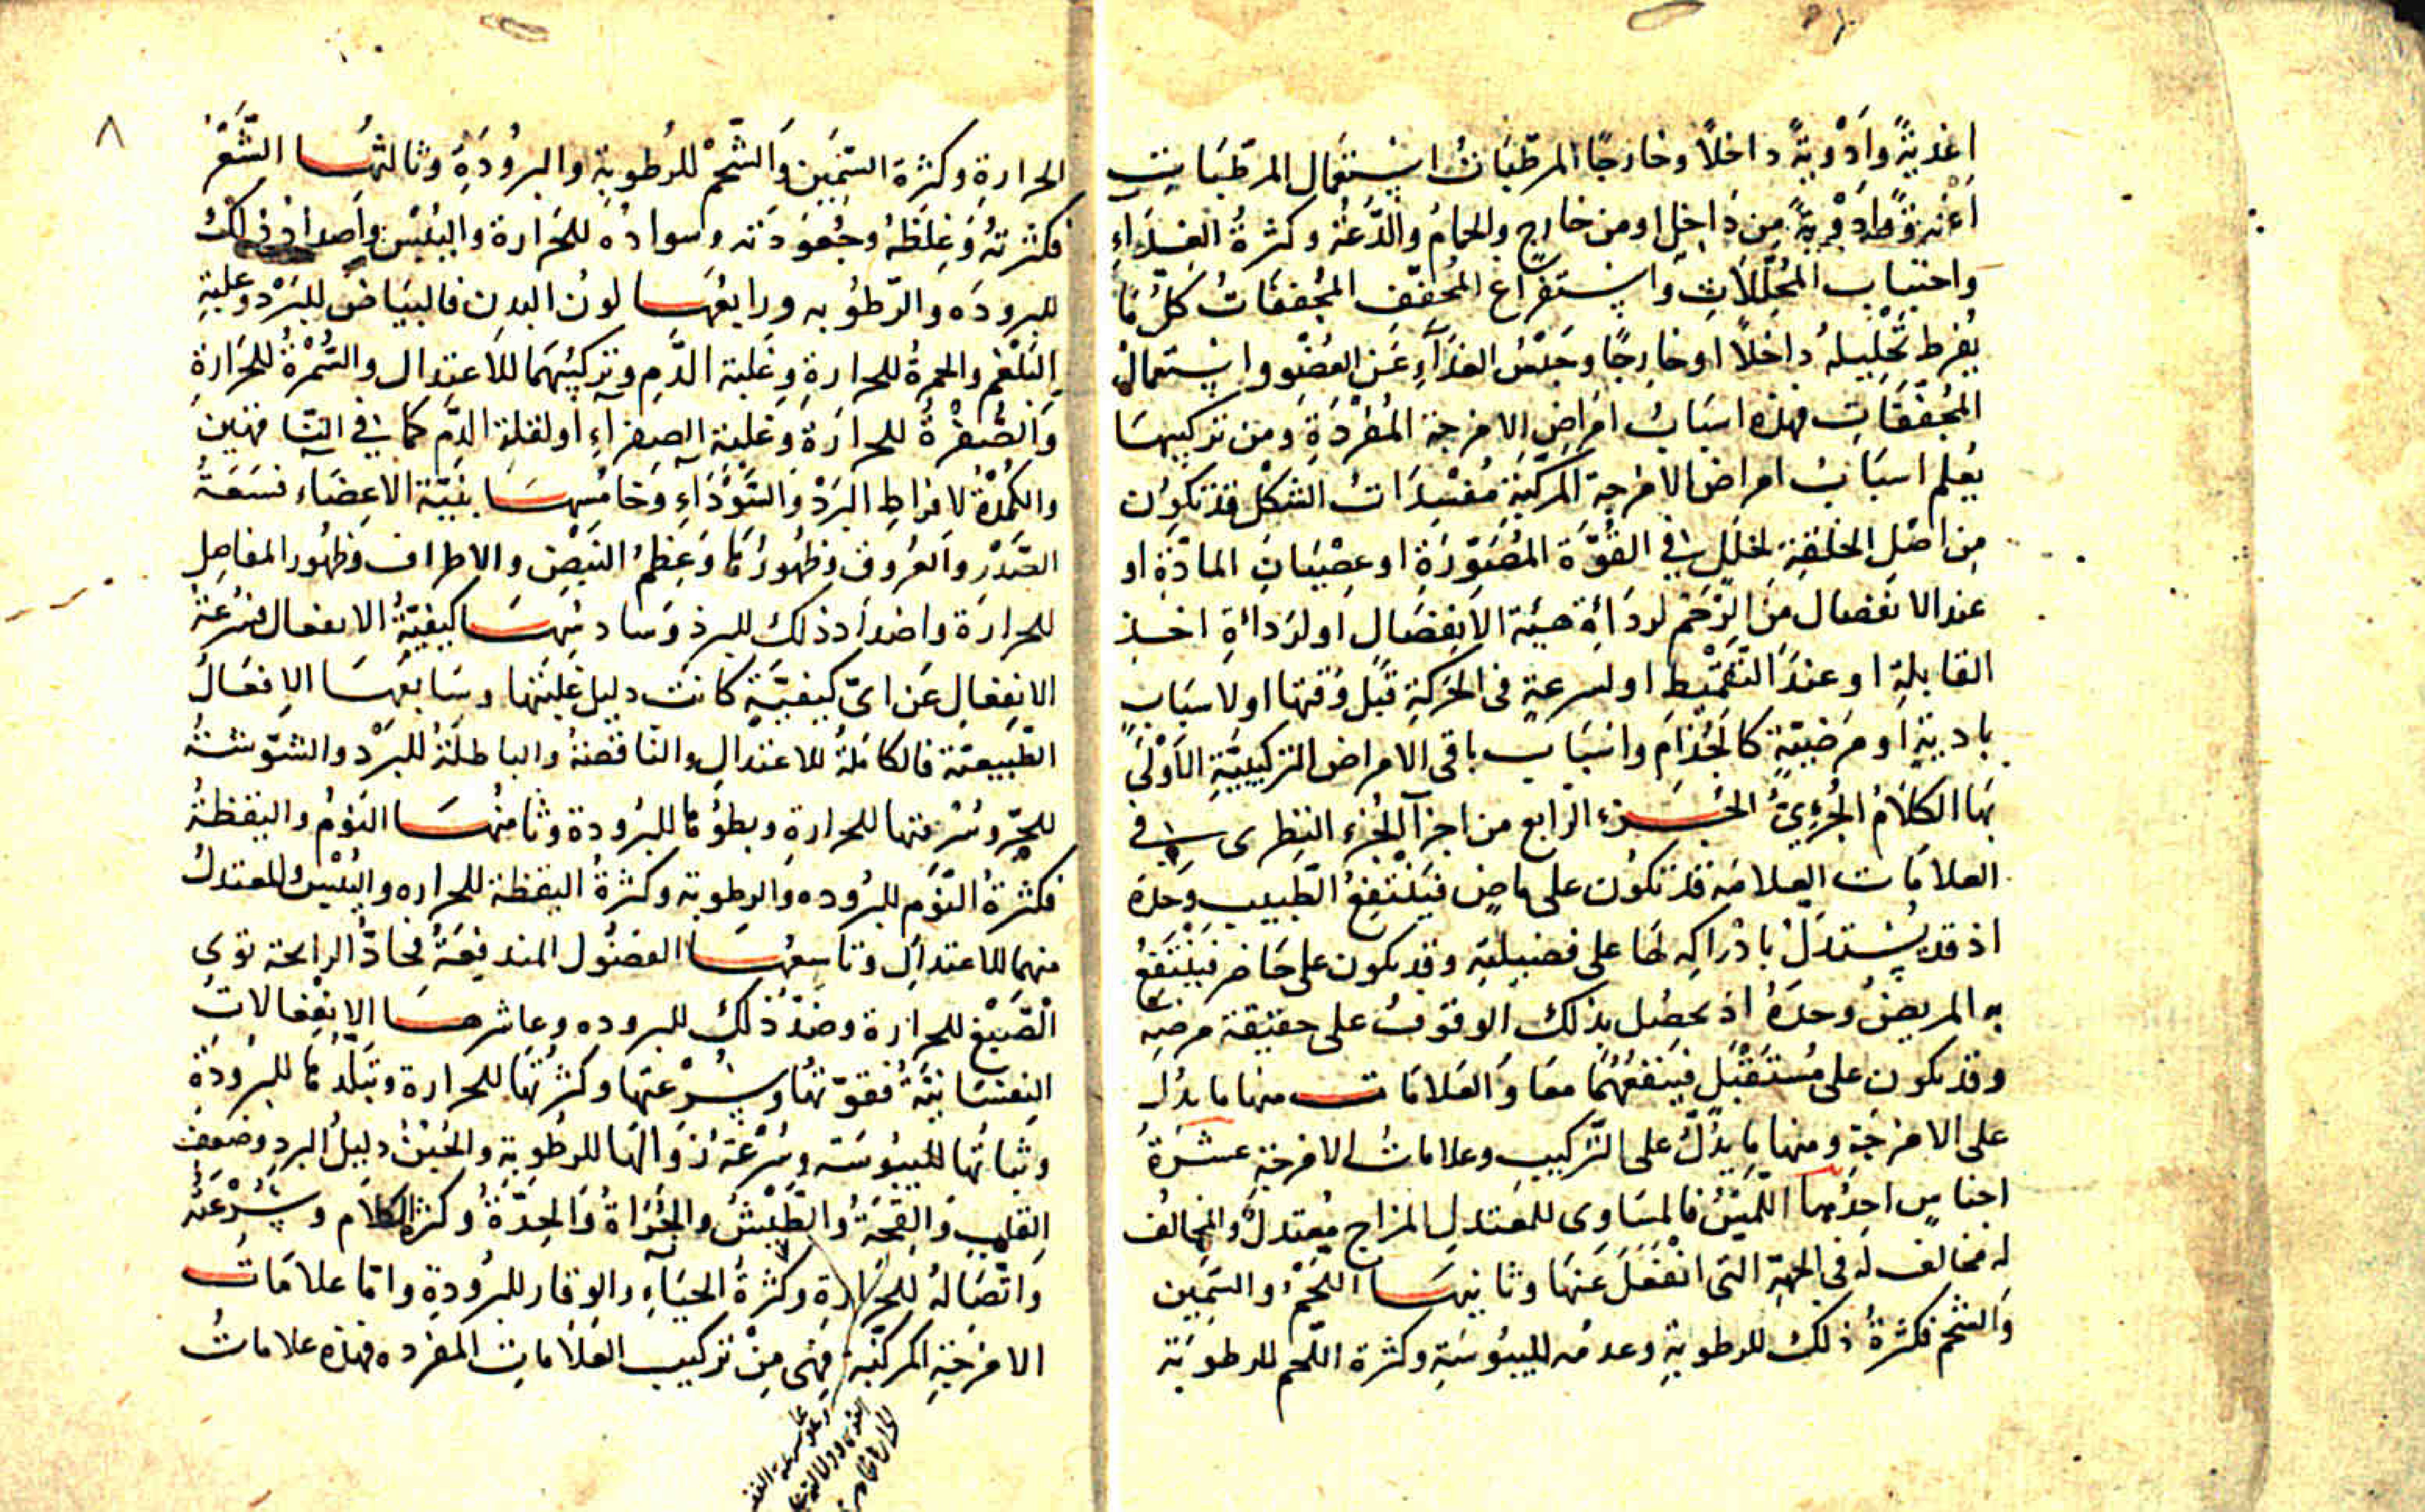 اغذيةً وادويةً داخلًا وخارجًا المرطّبات استعمال المرطّبات
اغذيةً وادويةً من داخلٍ او من خارجٍ والحمام والدّعة وكثرةُ الغذاءِ
واجتناب المحلّلاتِ واستفراغ المجفّف المجففات كل ما
يفرط تحليله داخلًا او خارجًا وحبس الغذآءِ عن العضو واستعمال
المجففات فهذه اسباب امراض الامزجة المفردة ومن تركيبها
يعلم اسباب امراض الامزجة المركّبة مفسدات الشكل قد تكون
من اصل الخلقة لخللٍ في القوّة المصوّرة او عصيان المادّة او
عند الانفصال من الرّحم لردائة هيئة الانفصال او لردائة اخذ
القابلة او عند التقميط او لسرعةٍ في الحركة قبل وقتها او لاسبابٍ
باديةٍ او مرضيّةٍ كالجذام واسباب باقى الامراض التركيبيّة الاولى
بها الكلام الجزءىّ الجزء الرابع من اجزآ الجزء النظرى في
العلامات العلامه قد تكون على ماضٍ فينتفع الطبيب وحده
اذ قد يستدل بادراكه لها على فضيلته وقد يكون على حاضر فينتفع
به المريض وحده اذ يحصل بذلك الوقوف على حقيقة مرضه
وقد يكون على مستقبل فينفعهما معا والعلامات منها ما يدل
على الامزجة ومنها ما يدلّ على التركيب وعلامات الامزجة عشرة
اجناسٍ احدها اللّمس فالمساوى للمعتدل المزاج معتدل والمخالف
له مخالف له في الجهة التى انفعل عنها وثانيها اللحم والسّمين
والشحم فكثرة ذلك للرطوبة وعدمه لليبوسة وكثرة اللحم للرطوبة
٨
الحرارة وكثرة السّمين والشّحم للرطوبة والبرودة وثالثها الشّعر
فكثرته وغلظه وجعودته وسواده للحرارة واليبس واضداد ذلك
للبروده والرطوبه ورابعها لون البدن فالبياض للبرد وغلبة
البلغم والحمرة للحرارة وغلبة الدّم وتركيبهما للاعتدال والسّمرة للحرارة
والصّفرة للحرارة وغلبة الصفرآءِ او لقلة الدّم كما في الناقهين
والكمدة لافراط البرد والسّودآءِ وخامسها بنية الاعضآء فسعة
الصّدر والعروق وظهورها وعظم النبض والاطراف وظهور المفاصل
للحرارة واضداد ذلك للبرد وسادسها كيفيّة الانفعال فسرعة
الانفعال عن اىّ كيفيّةٍ كانت دليل غلبتها وسابعها الافعال
الطّبيعيّة فالكاملة للاعتدال والناقصة والباطلة للبرد والشوّشة
للحرّ وسرعتها للحرارة وبطؤها للبرودة وثامنها النوم واليقظة
فكثرة النّوم للبروده والرطوبة وكثرة اليقظة للحراره واليبس المعتدل
منهما للاعتدال وتاسعها الفضول المندفعة فحادّ الرايحة قوى
الصّبغ للحرارة وضدّ ذلك للبروده وعاشرها الانفعالات
النفسانيّة فقوّتها وسرعتها وكثرتها للحرارة وتبلدها للبرودة
وثباتها لليبوسة وسرعة زوالها للرطوبة والجبن دليل البرد وضعف
القلب والقحة والطيش والجرأة والحدّة وكثرة الكلام وسرعته
واتّصاله للحرارة وكثرة الحيآءِ والوقار للبرودة وامّا علامات
الامزجة المركّبة فهى من تركيب العلامات المفرده فهذه علامات